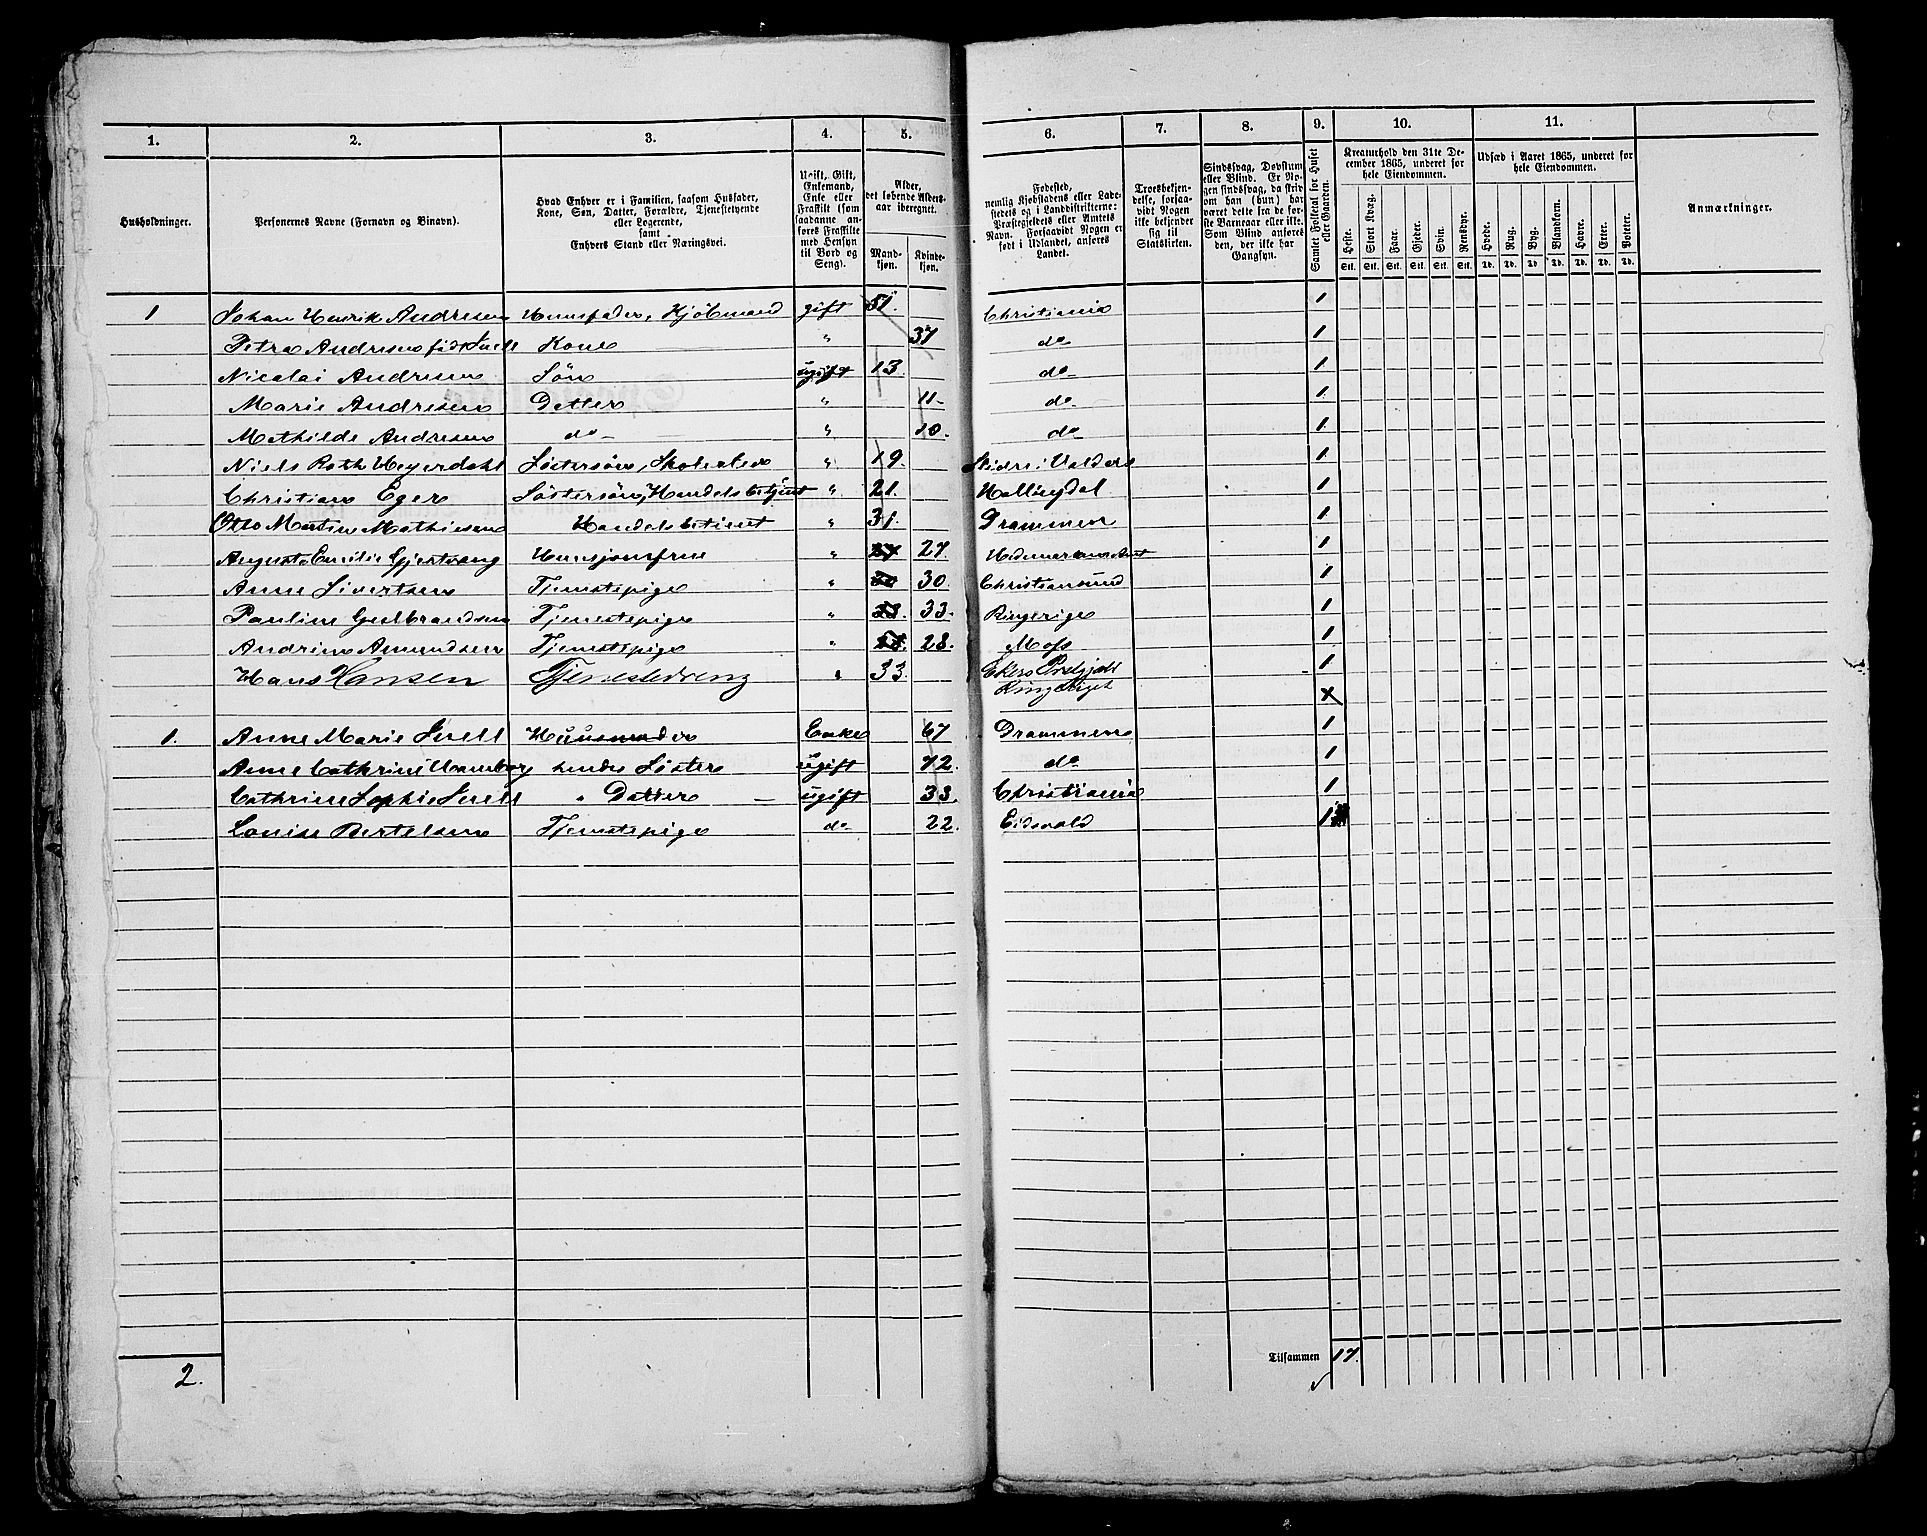 1. 2. 3. 4. 5. 6. 7. 8. 9. 10. 11.
Husholdninger.
Personernes Navne (Fornavn og Binavn).
Hvad Enhver er i Familien, saasom Husfader,
Kone, Søn, Datter, Forældre, Tjenestetyende
eller Logerende,
samt
Enhvers Stand eller Næringsvei.
Ugift, Gift,
Enkemand,
Enke eller
Fraskilt (som
saadanne an-
føres Fraskilte
med Hensyn
til Bord og
Seng).
Alder,
det løbende Alders-
aar iberegnet.
Mand-
kjøn.
Kvinde-
kjøn.
Fødested,
nemlig Kjøbstadens eller Lade-
stedets og i Landdistrikterne:
Præstegjeldets eller Amtets
Navn. Forsaavidt Nogen er
født i Udlandet, anføres
Landet.
Troesbekjen-
delse, forsaa-
vidt Nogen
ikke bekjender
sig til
Statskirken.
Sindssvag, Døvstum
eller Blind. Er No-
gen sindssvag, da skriv
om han (hun) har
været dette fra de før-
ste Barneaar eller ikke.
Som Blind anføres
den, der ikke har
Gangsyn.
Samlet Folketal for Huset
eller Gaarden.
Kreaturhold den 31te De-
cember 1865, underet for
hele Eiendommen.
Heste. Stort Kvæg. Faar. Gjeder. Svin. Rensdyr.
Stk. Stk. Stk. Stk. Stk. Stk.
Udsæd i Aaret 1865, underet for
hele Eiendommen.
Hvede. Rug. Byg. Blandkorn. Havre. Erter. Poteter.
Td. Td. Td. Td. Td. Td. Td.
Anmærkninger.
1 Johan Henrik Andresen Huusfader, Kjøbmand gift 51. Christiania 1
Petra Andresen fød Snell Kone " 37 do 1
Nicolai Andresen Søn ugift 13 do 1
Marie Andresen Datter " 11 do 1
Mathilde Andresen do " 10. do 1
Niels Roth Heyerdahl Søstersøn, Skoleelev " 19. Slidre i Valders 1
Christian Eger Søstersøn, Handelsbetjent " 21. Hallingdal 1
Otto Martin Mathiesen Handelsbetient " 31. Drammen 1
Augusta Emilie Gjertsvang Huusjomfrue " 27 27. Hedemarkens Amt 1
Anne Sivertsen Tjenestepige " 30 30. Christiansund 1
Pauline Gulbrandsen Tjenestepige " 33. 33. Ringerige 1
Andrine Amundsen Tjenestepige " 28. 28. Moss 1
Hans Hansen Tjenestedreng " 33. Ekers Prstgjeld 1
x
1. Anne Marie Snell Huusmoder Enke 67 Drammen 1
Anne Cathrine Hamborg hendes Søster ugift 72. do 1
Cathrine Sophie Snell " Datter ugift 33. Christiania 1
Louise Bertelsen Tjenestepige do 22. Eidsvold 1
2.
Tilsammen 17.